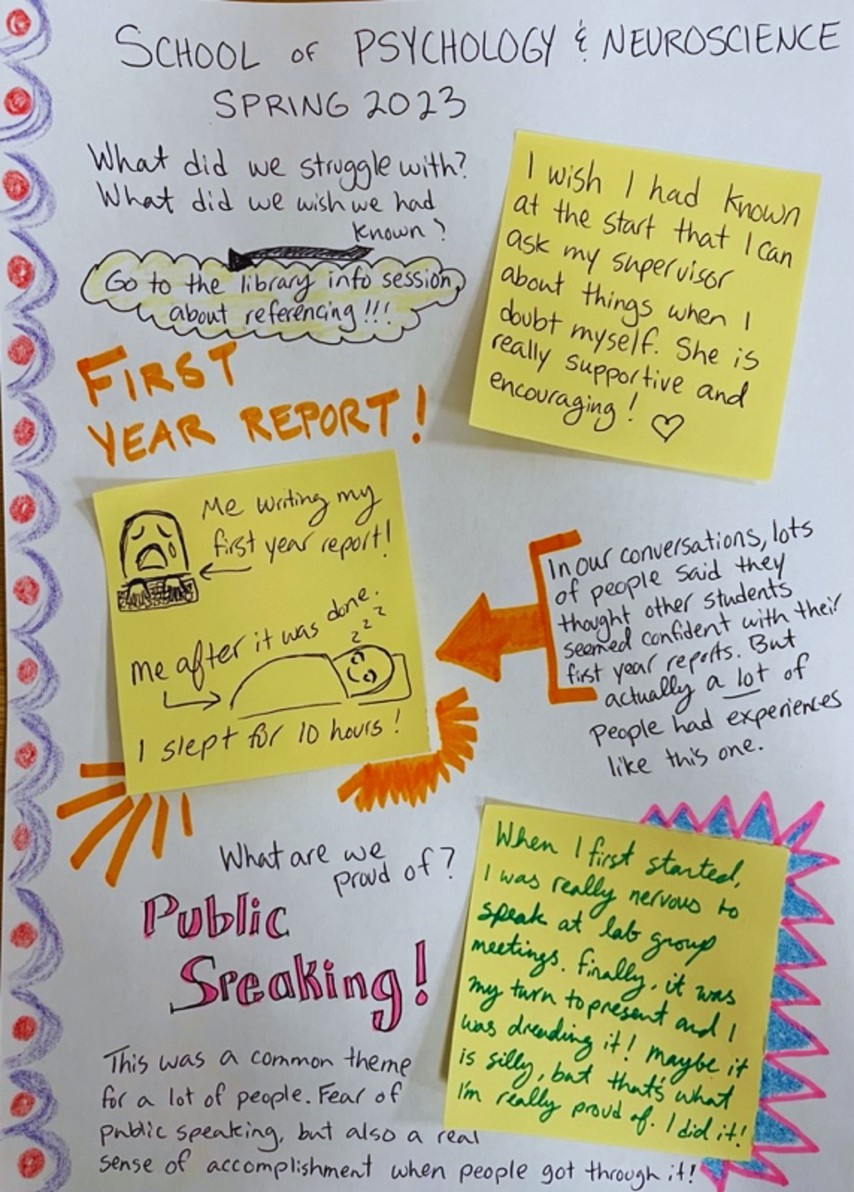 SCHOOL of PSYCHOLOGY & NEUROSCIENCE
SPRING 2023
What did we struggle with?
What did we wish we had
known?
Go to the library info session
about referencing!!!
I wish I had known
at the start that I can
ask my supervisor
about things when I
doubt myself. She is
really supportive and
encouraging! ♡
FIRST
YEAR REPORT!
Me writing my
first year report!
Me after it was done.
z z z
I slept for 10 hours!
In our conversations, lots
of people said they
thought other students
seemed confident with their
first year reports. But
actually a lot of
people had experiences
like this one.
What are we
proud of?
Public
Speaking!
When I first started,
I was really nervous to
speak at lab group
meetings. Finally, it was
my turn to present and I
was dreading it! Maybe it
is silly, but that's what
I'm really proud of. I did it!
This was a common theme
for a lot of people. Fear of
public speaking, but also a real
sense of accomplishment when people got through it!